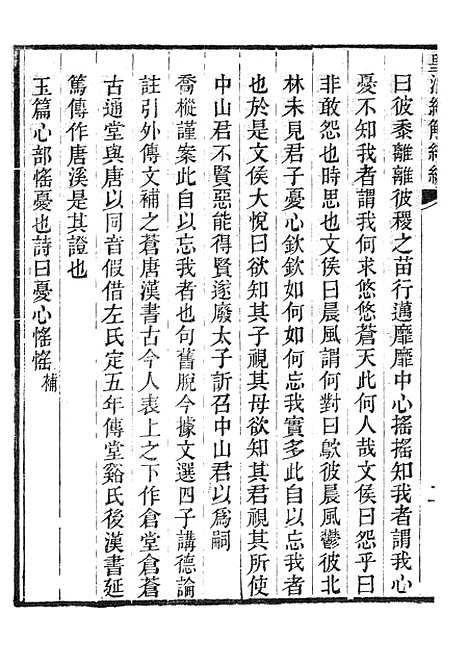 皇清經解續編
曰彼黍離離彼稷之苗行邁靡靡中心搖搖知我者謂我心
憂不知我者謂我何求悠悠蒼天此何人哉文侯曰怨乎曰
非敢怨也時思也文侯曰晨風謂何對曰鴥彼晨風鬱彼北
林未見君子憂心欽欽如何如何忘我實多此自以忘我者
也於是文侯大悅曰欲知其子視其母欲知其君視其所使
中山君不賢惡能得賢遂廢太子訢召中山君以爲嗣
喬樅謹案此自以忘我者也句舊脫今據文選四子講德論
註引外傳文補之蒼唐漢書古今人表上之下作倉堂倉蒼
古通堂與唐以同音假借左氏定五年傳堂谿氏後漢書延
篤傳作唐溪是其證也
玉篇心部愮憂也詩曰憂心愮愮補